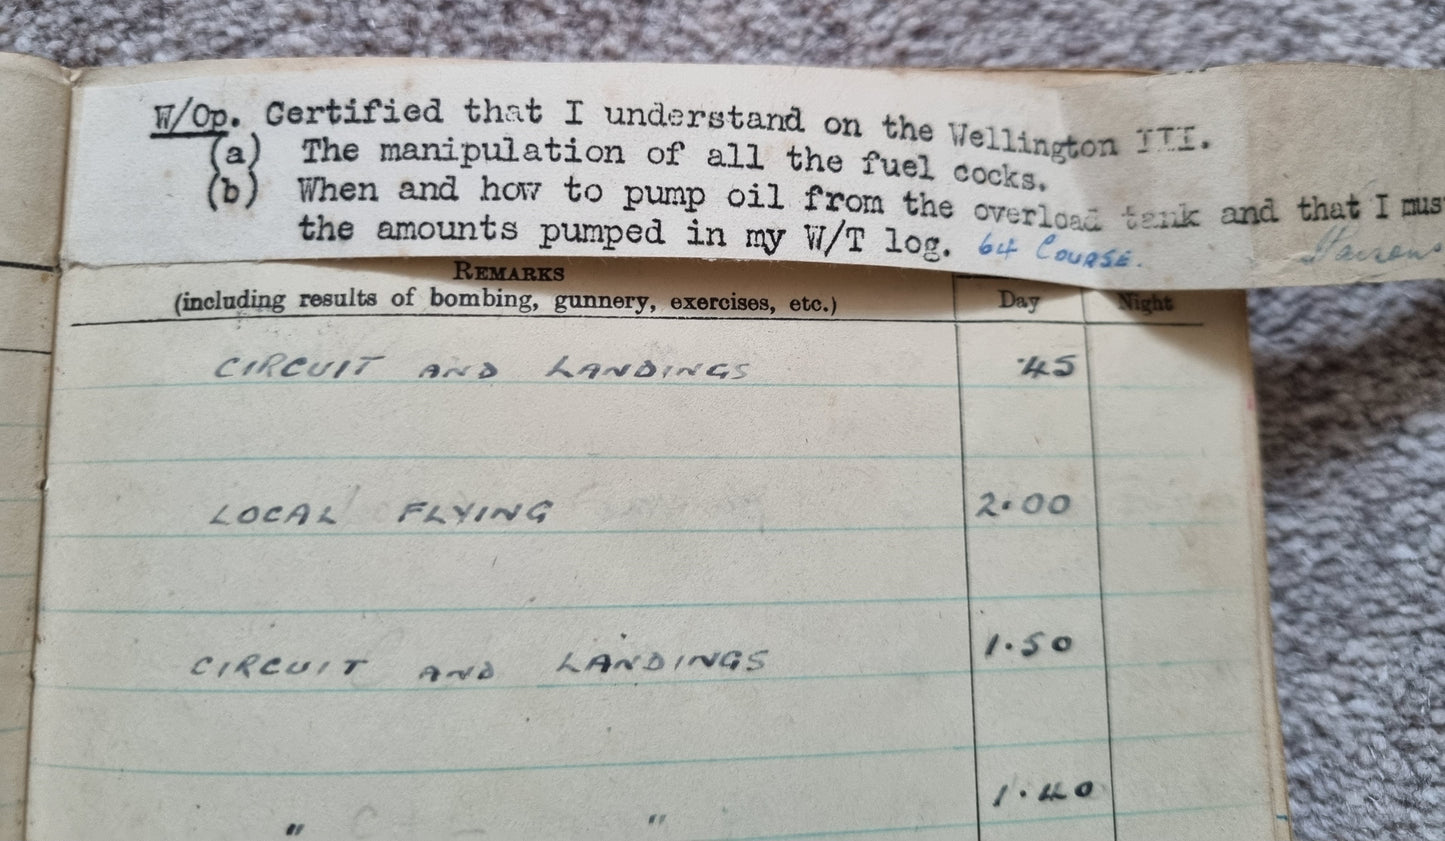 W/Op. Certified that I understand on the Wellington III.
(a) The manipulation of all the fuel cocks.
(b) When and how to pump oil from the overload tank and that I mus
the amounts pumped in my W/T log. 64 COURSE.
REMARKS
(including results of bombing, gunnery, exercises, etc.) Day Night
CIRCUIT AND LANDINGS .45
LOCAL FLYING 2.00
CIRCUIT AND LANDINGS 1.50
1.40
" "